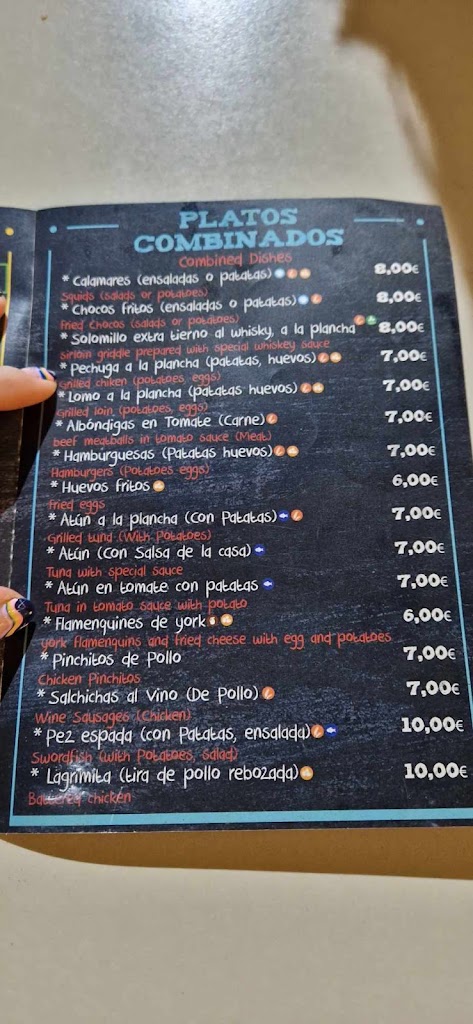 PLATOS
COMBINADOS
Combined Dishes
* Calamares (ensaladas o patatas) 8,00€
Squids (salads or potatoes)
* Chocos fritos (ensaladas o patatas) 8,00€
Fried Chocos (salads or potatoes)
* Solomillo extra tierno al whisky, a la plancha 8,00€
sirloin griddle prepared with special whiskey sauce
* Pechuga a la plancha (patatas, huevos) 7,00€
Grilled chiken (potatoes, eggs)
* Lomo a la plancha (patatas huevos) 7,00€
Grilled loin, (potatoes, eggs)
* Albóndigas en Tomate (Carne) 7,00€
beef meatballs in tomato sauce (Meat)
* Hamburguesas (Patatas huevos) 7,00€
Hamburgers (Potatoes eggs)
* Huevos fritos 6,00€
Fried eggs
* Atún a la plancha (Con Patatas) 7,00€
Grilled tuna (With Potatoes)
* Atún (Con Salsa de la casa) 7,00€
Tuna with special sauce
* Atún en tomate con patatas 7,00€
Tuna in tomato sauce with potato
* Flamenquines de york 6,00€
york flamenquins and fried cheese with egg and potatoes
* Pinchitos de Pollo 7,00€
Chicken Pinchitos
* Salchichas al Vino (De Pollo) 7,00€
Wine Sausages (Chicken)
* Pez espada (con Patatas, ensalada) 10,00€
Swordfish (with Potatoes, Salad)
* Lagrimita (tira de pollo rebozada) 10,00€
Battered chicken